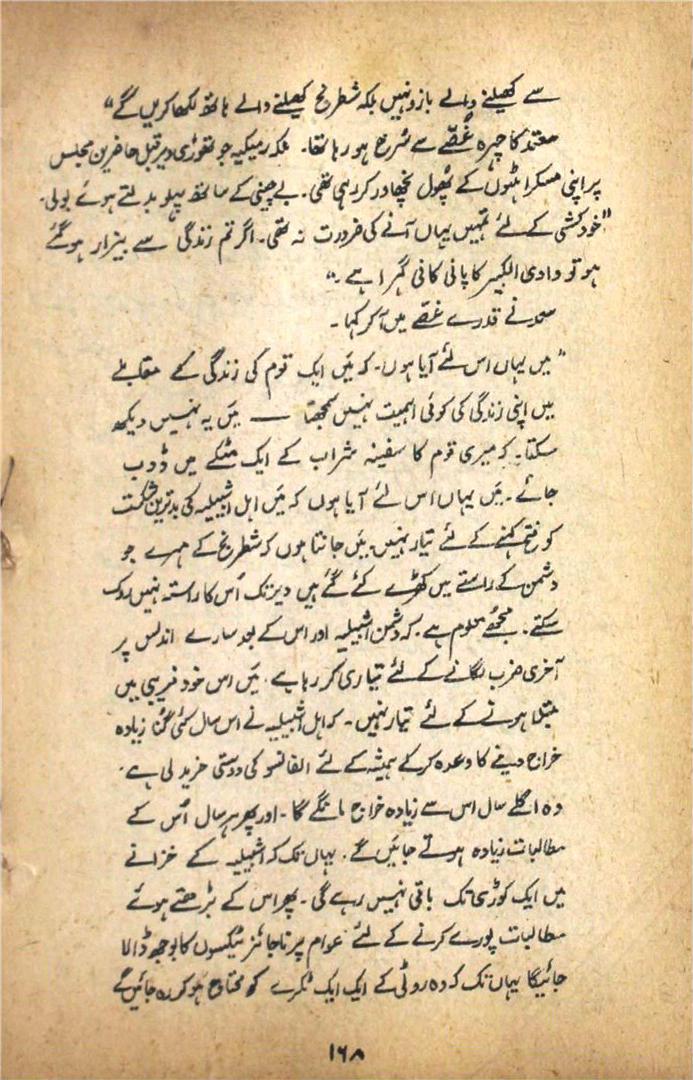 سے کھیلنے والے بازو نہیں بلکہ شطرنج کھیلنے والے ہاتھ لکھا کریں گے“
معتمد کا چہرہ غصّے سے سُرخ ہو رہا تھا۔ ملکہ رمیکیہ جو تھوڑی دیر قبل حاضرین مجلس
پر اپنی مسکراہٹوں کے پھول نچھاور کر رہی تھی۔ بے چینی کے ساتھ پہلو بدلتے ہوئے بولی۔
”خودکشی کے لئے تمہیں یہاں آنے کی ضرورت نہ تھی۔ اگر تم زندگی سے بیزار ہو گئے
ہو تو وادی الکبیر کا پانی کافی گہرا ہے۔“
سعد نے قدرے غصّے میں آ کر کہا۔
”میں یہاں اس لئے آیا ہوں۔ کہ میَں ایک قوم کی زندگی کے مقابلے
میں اپنی زندگی کی کوئی اہمیت نہیں سمجھتا — میَں یہ نہیں دیکھ
سکتا۔ کہ میری قوم کا سفینہ شراب کے ایک مٹکے میں ڈوب
جائے۔ میَں یہاں اس لئے آیا ہوں کہ میَں اہل اشبیلیہ کی بدترین شکست
کو فتح کہنے کے لئے تیار نہیں۔ میَں جانتا ہوں کہ شطرنج کے مہرے جو
دشمن کے راستے میں کھڑے کئے گئے ہیں دیر تک اُس کا راستہ نہیں روک
سکتے۔ مجھے معلوم ہے۔ کہ دشمن اشبیلیہ اور اس کے بعد سارے اندلس پر
آخری ضرب لگانے کے لئے تیاری کر رہا ہے۔ میَں اس خود فریبی میں
مبتلا ہونے کے لئے تیار نہیں۔ کہ اہل اشبیلیہ نے اس سال کئی گنا زیادہ
خراج دینے کا وعدہ کر کے ہمیشہ کے لئے الفانسو کی دوستی خرید لی ہے۔
وہ اگلے سال اس سے زیادہ خراج مانگے گا۔ اور پھر ہر سال اُس کے
مطالبات زیادہ ہوتے جائیں گے۔ یہاں تک کہ اشبیلیہ کے خزانے
میں ایک کوڑی تک باقی نہیں رہے گی۔ پھر اس کے بڑھتے ہوئے
مطالبات پورے کرنے کے لئے عوام پر ناجائز ٹیکسوں کا بوجھ ڈالا
جائیگا یہاں تک کہ وہ روٹی کے ایک ایک ٹکڑے کو محتاج ہو کر رہ جائیں گے
۱۶۸